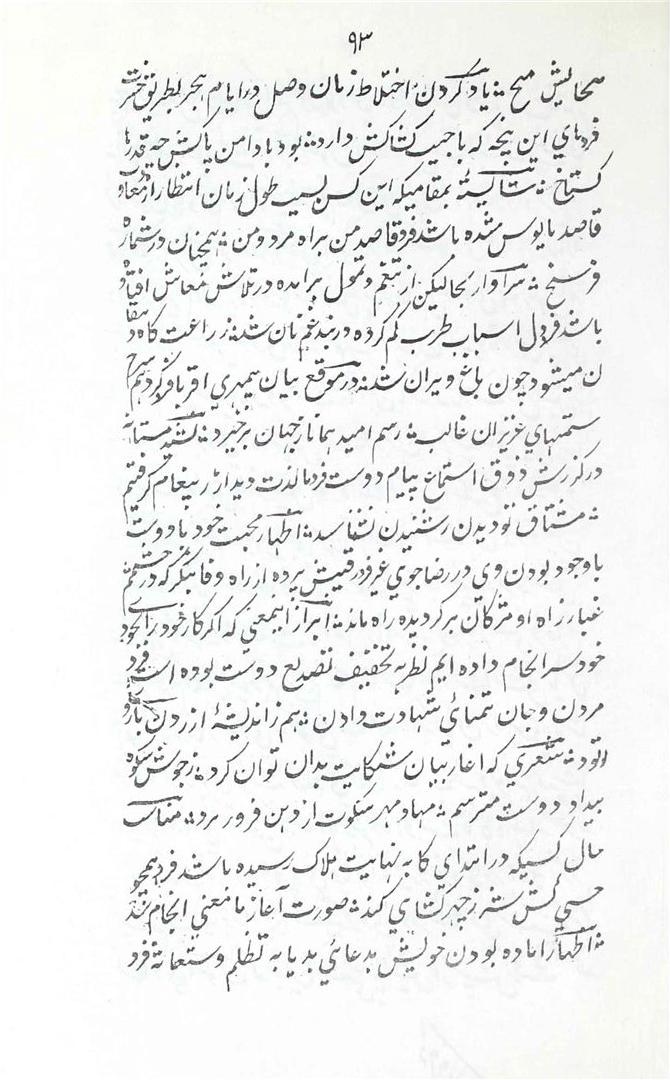 ۹۳
همایش میچ ؞ یاد کردن اختلاط زمان وصل در ایام هجر بطریق حسرت
فرد های این پنجه که با جیب کشاکش دارد ؞ بود با دامن پاکش چه قدر ها
گستاخ ؞ شایسته بمقامیکه این کس بسبب طول زمان انتظار از معاودت
قاصد مایوس شده باشد فرد قاصد من براه مرد و من ؞ همچنان در شماره
فرسخ ؞ سزاوار بحالیکه از تنعم و تمول برامده در تلاش معاش افتاده
باشد فرد دل اسباب طرب گم کرده در بند غم نان شد ؞ زراعت گاه دهقا
ن میشود چون باغ ویران شد ؞ در موقع بیان بیمهری اقربا فرد گر دهم شرح
ستمهای عزیزان غالب ؞ رسم امید همانا ز جهان برخیزد ؞
در گزارش ذوق استماع پیام دوست فرد ما لذت دیدار ز پیغام گرفتیم
؞ مشتاق تو دیدن ز شنیدن نشناسد ؞ اظهار محبت خود با دوست
با وجود بودن وی در رضا جوی غیر فرد رقیبش برده از راه وفا بنگر که در چشمم
غبار راه او مژگان برگردیده راه ماند ؞ ابراز اینمعنی که اگر کار خود را بخود
خود سرانجام داده ایم نظر به تخفیف تصدیع دوست بوده است فرد
مردن و جان بتمنای شهادت دادن ؞ هم ز اندیشهٔ آزردن بازوی
تو بود ؞ شعری که آغاز بیان شکایت بدان توان کرد ؞ ز جوش شکوه
بیداد دوست میترسم ؞ مباد مهر سکوت از دهن فرو ریزد ؞ مناسب
حال کسیکه در ابتدای کار به نهایت هلاک رسیده باشد فرد همچو
حبسی کش سر ز چهره کشای کند ؞ صورت آغاز ما معنی انجام شد
؞ اظهار اماده بودن خویش بدعای بد یا به تظلم و ستغاثه فرد